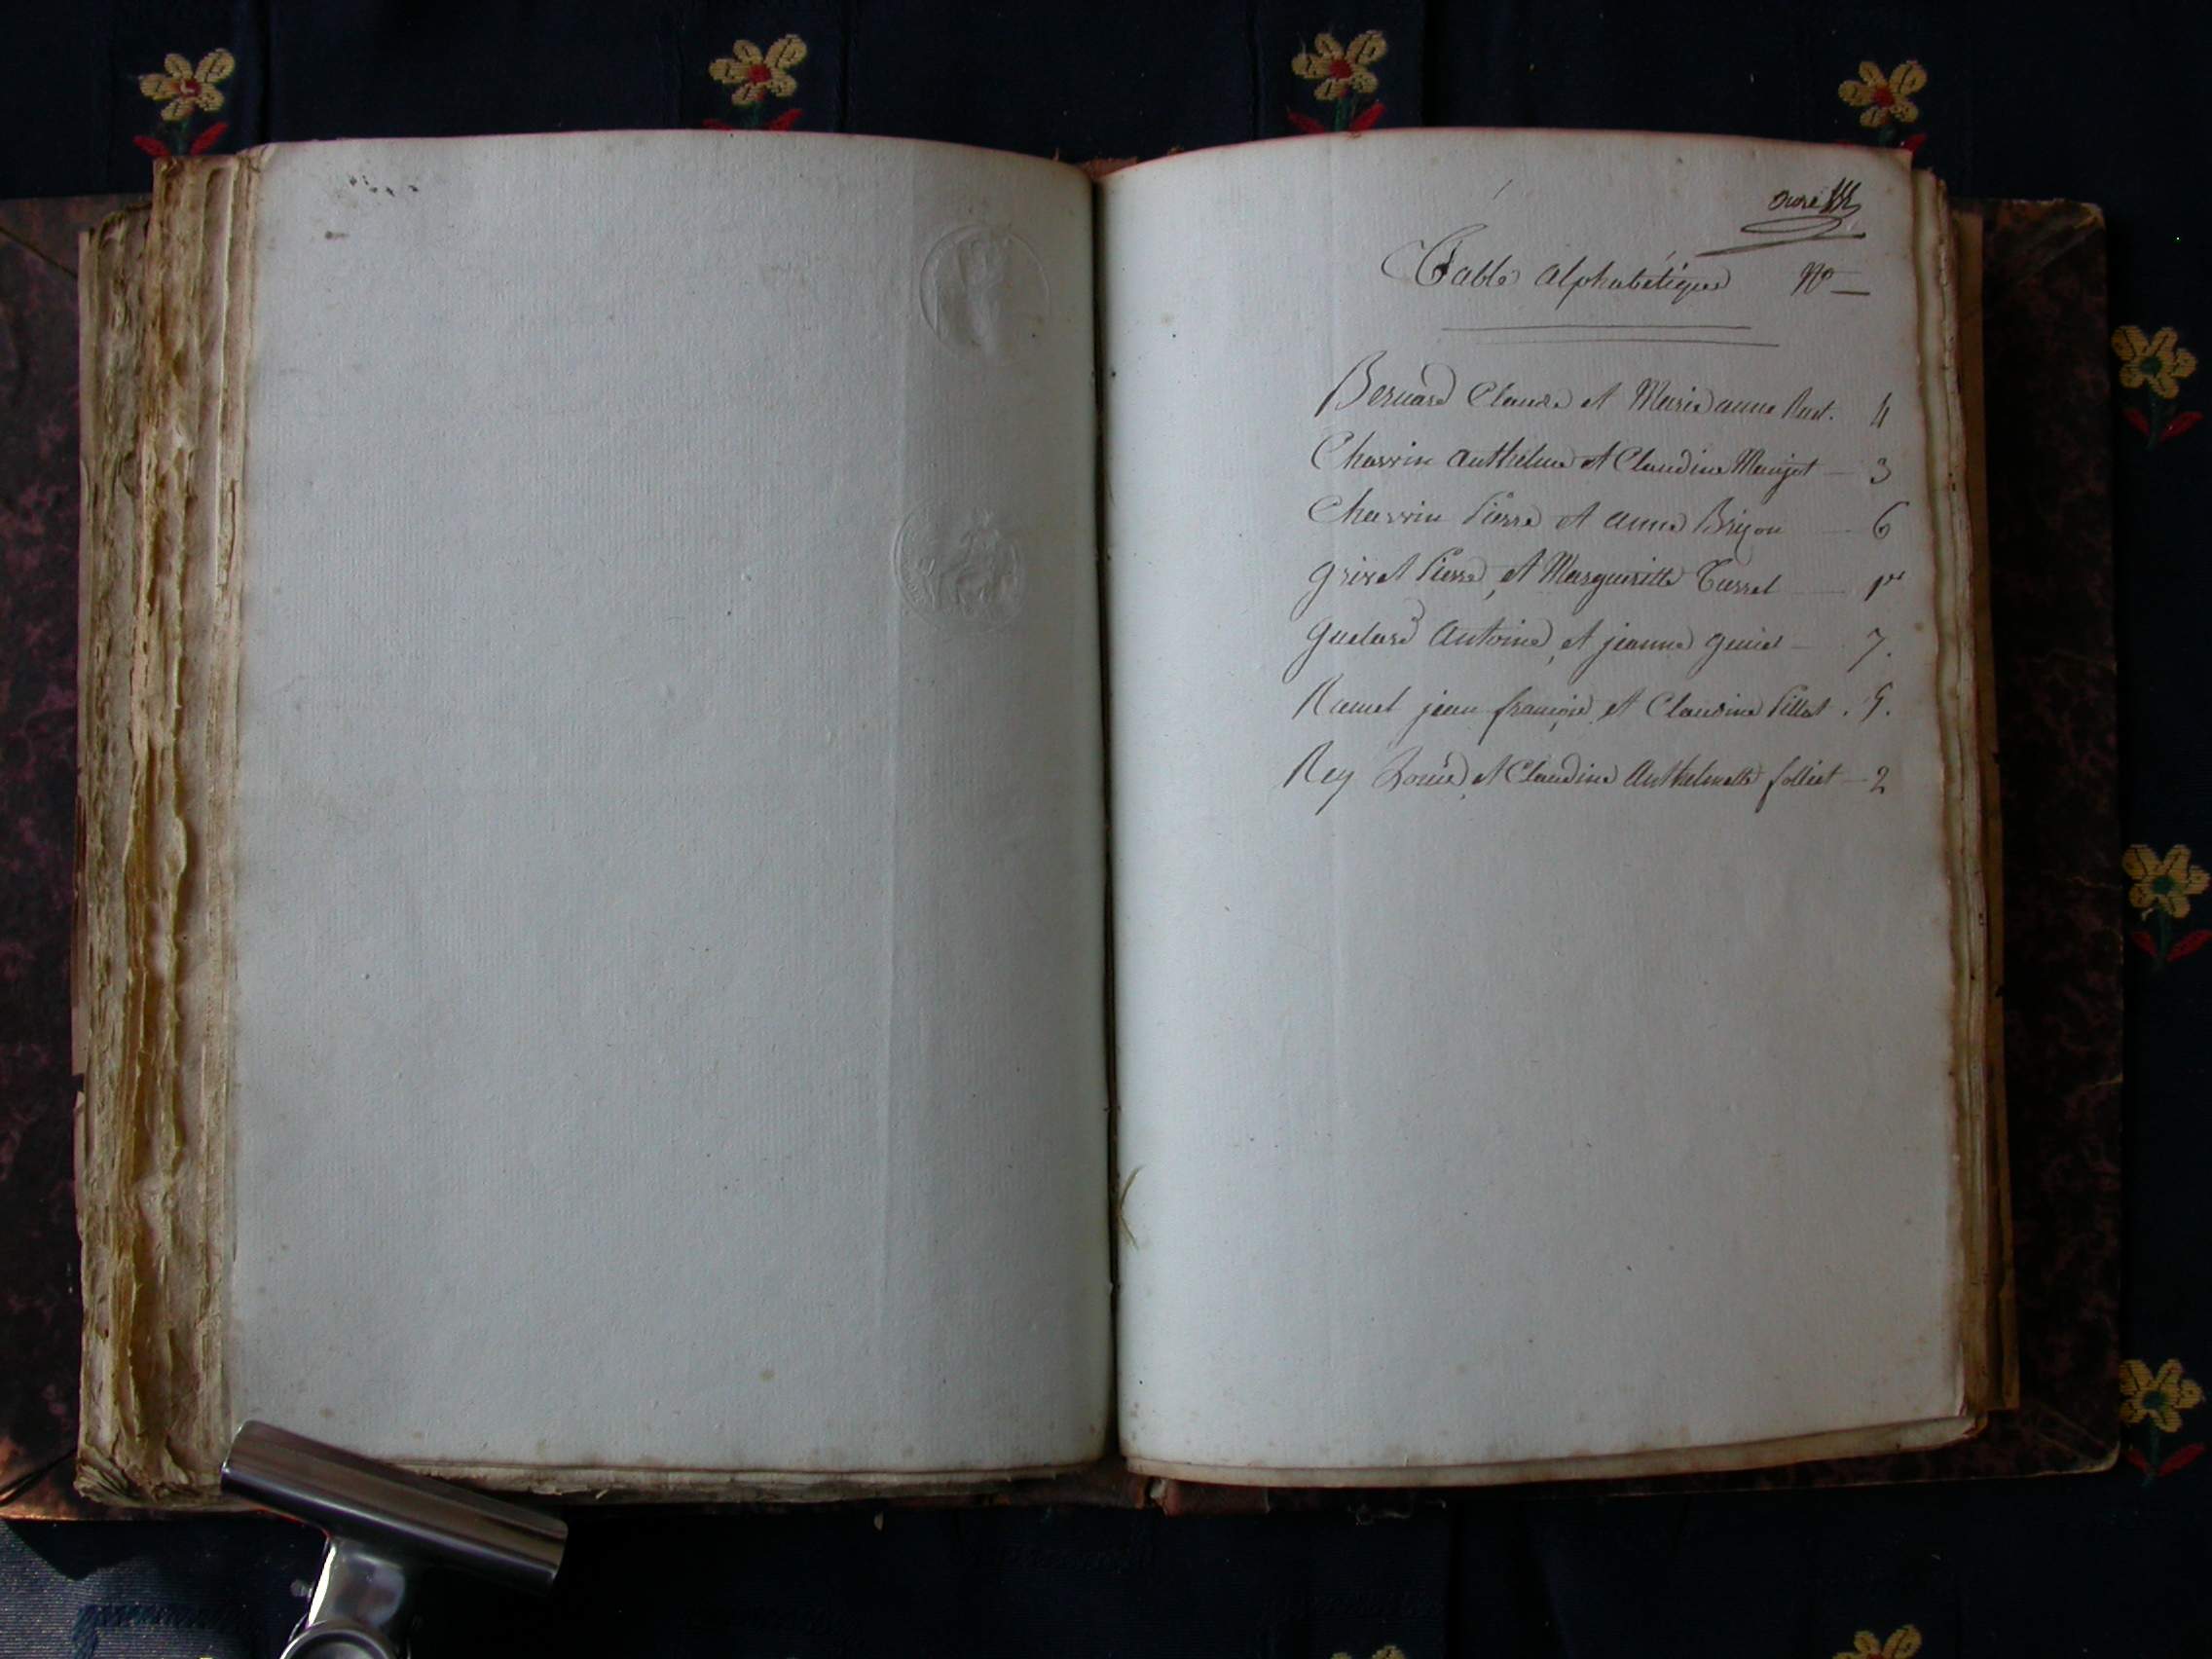 onze
Table alphabétique N°
Bernard Claude et Marie anne 4
Charvin anthelme et Claudine Maujot 3
Charvin Pierre et anne Brizon 6
grivet Pierre, et Margueritte Curret 1er
Antoine, et jeanne 7.
Ramel jean françois, et Claudine Pillot . 5.
Rey Louis, et Claudine Anthelmette folliet 2